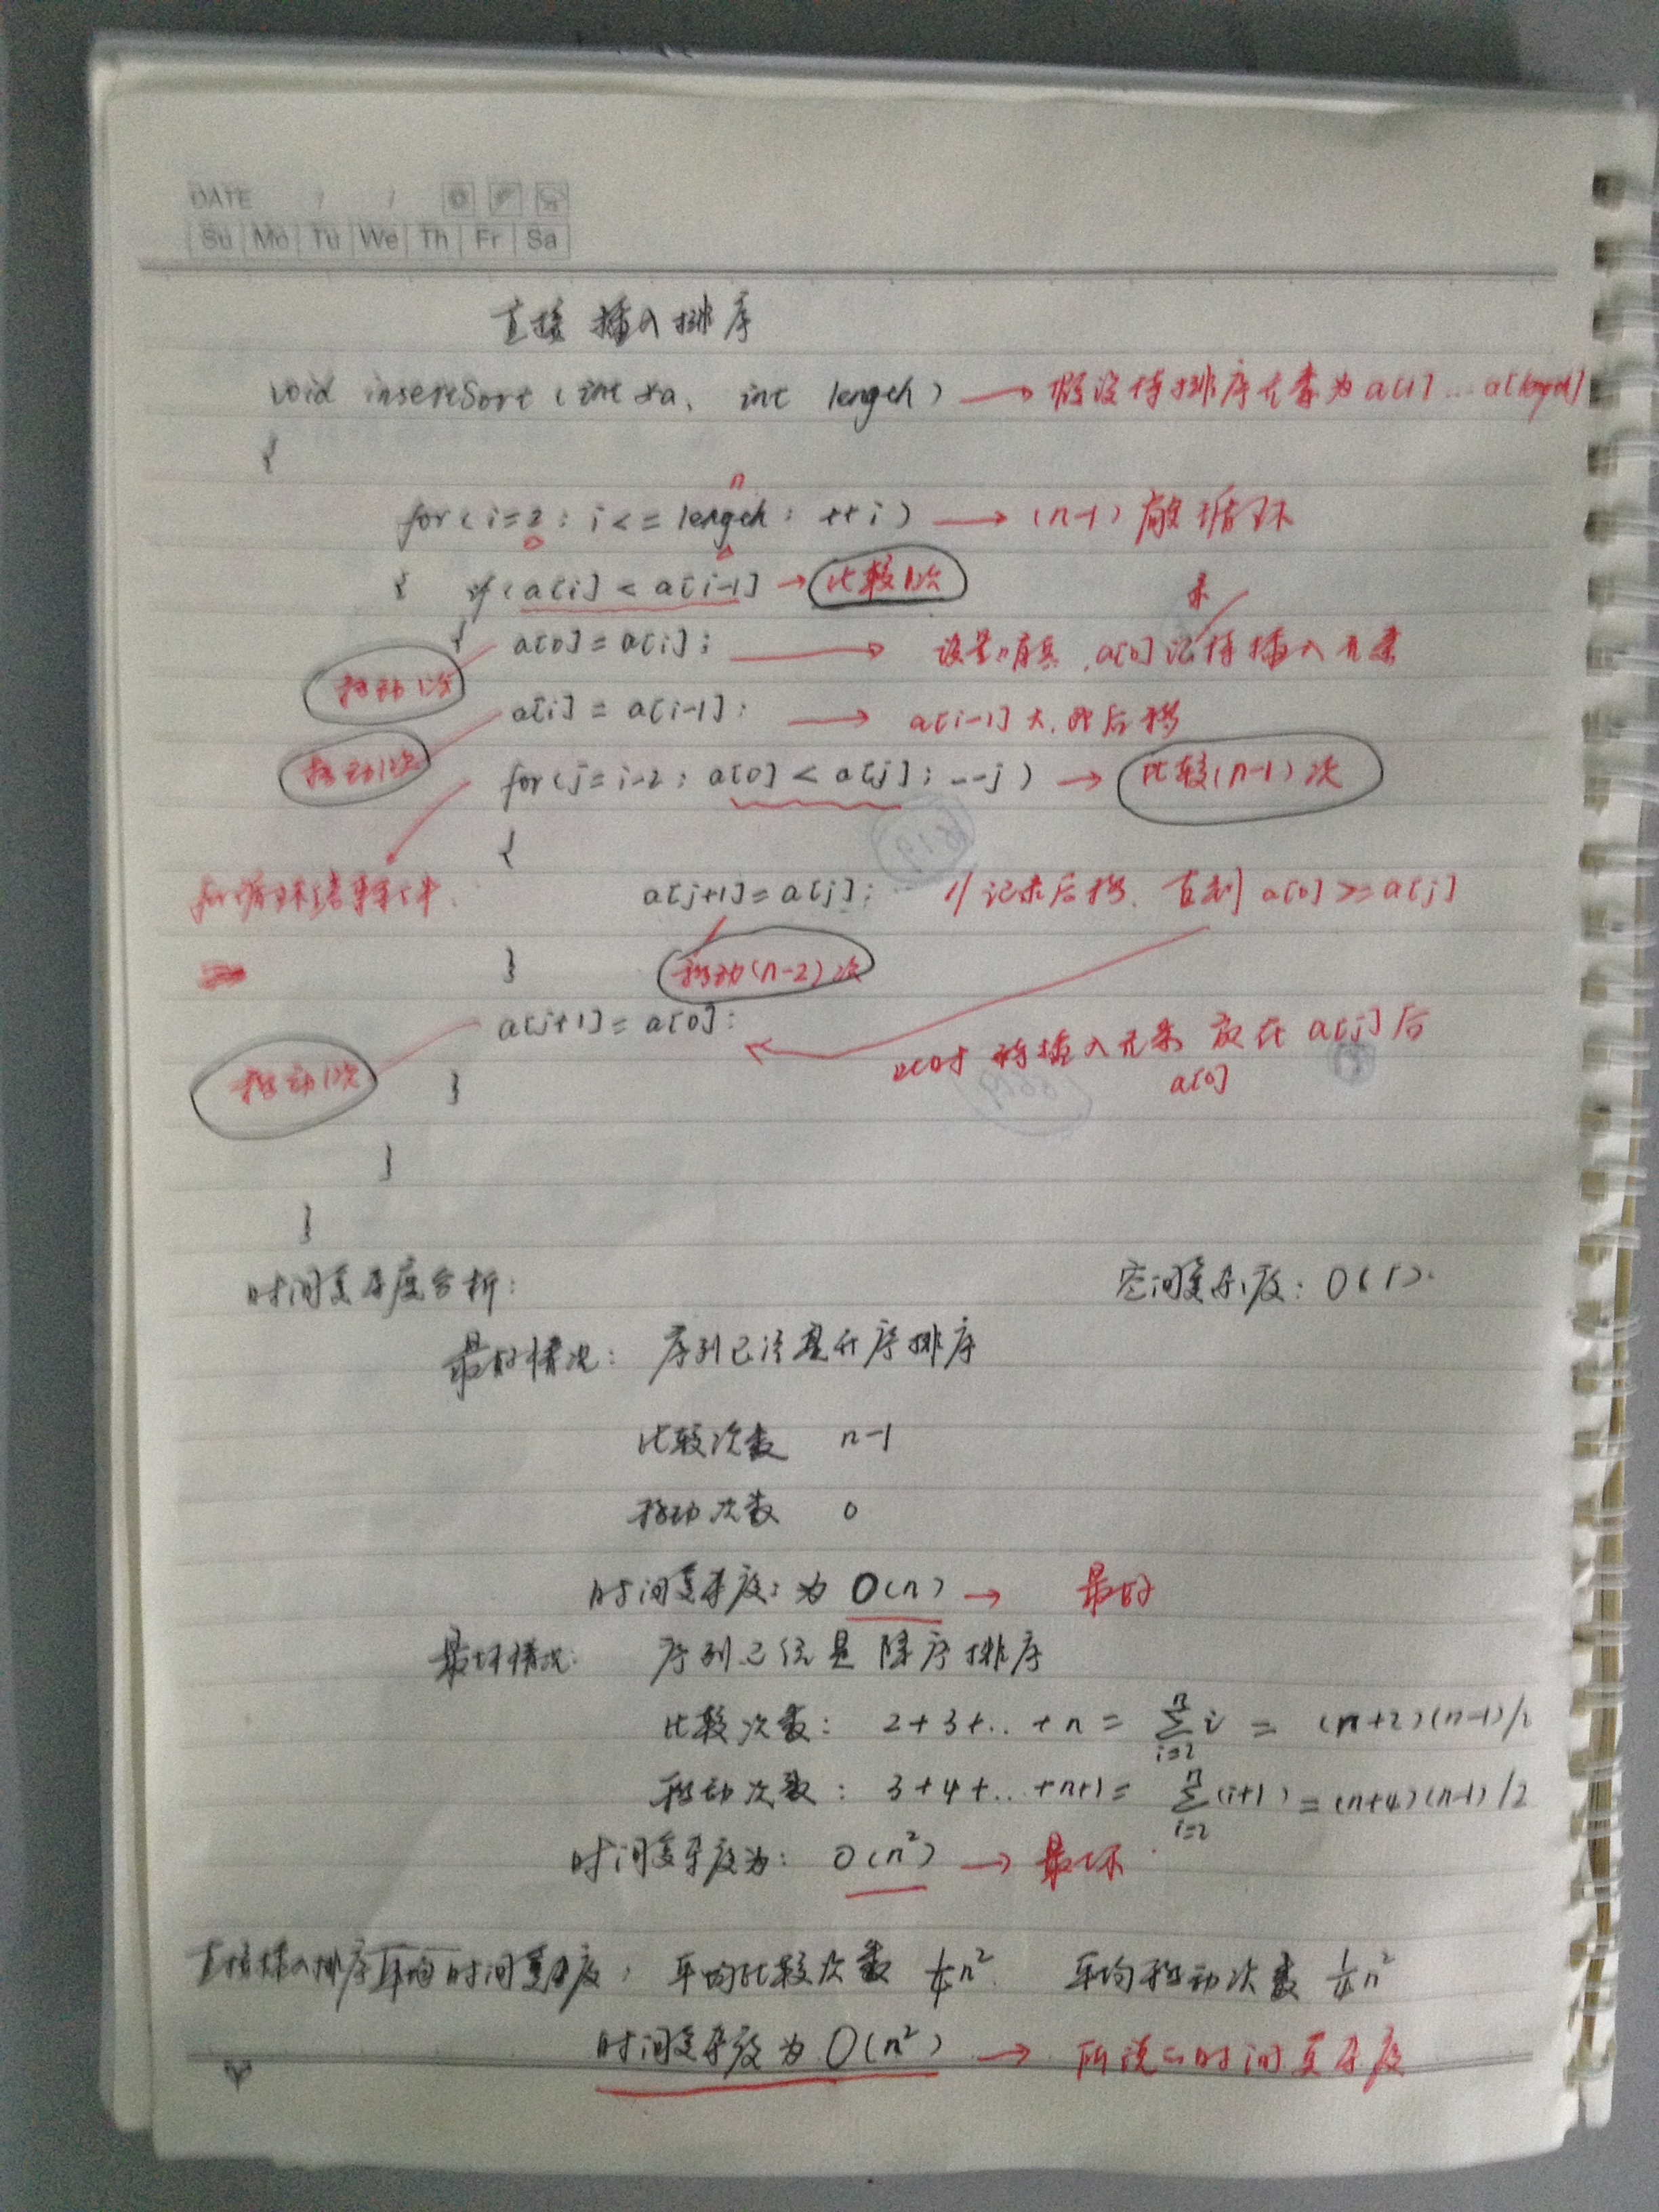 DATE / /
Su Mo Tu We Th Fr Sa
直接插入排序
void insertSort (int *a, int length) → 假设待排序元素为a[1]...a[length]
{
n
for (i=2; i<=length; ++i) → (n-1) 次循环
{ if (a[i] < a[i-1] → 比较1次
{ a[0]=a[i]; → 设置哨兵,a[0]记待插入元素
录
移动1次
a[i] = a[i-1]; → a[i-1]大,则后移
移动1次
for (j=i-2; a[0] < a[j]; --j) → 比较(n-1)次
{
for循环结束条件.
a[j+1]=a[j]; // 记录后移, 直到 a[0]>=a[j]
} 移动(n-2)次
a[j+1]=a[0];
移动1次
将插入元素 放在 a[j]后
a[0]
}
}
}
时间复杂度分析: 空间复杂度: O(1).
最好情况: 序列已经是升序排序
比较次数 n-1
移动次数 0
时间复杂度: 为 O(n) → 最好
最坏情况: 序列已经是 降序排序
比较次数: 2+3+..+n = ∑ⁿᵢ₌₂ i = (n+2)(n-1)/2
移动次数: 3+4+...+n+1= ∑ⁿᵢ₌₂ (i+1) = (n+4)(n-1)/2
时间复杂度为: O(n²) → 最坏
直接插入排序平均时间复杂度: 平均比较次数 ¼n². 平均移动次数 ¼n²
时间复杂度为 O(n²) → 所说的时间复杂度